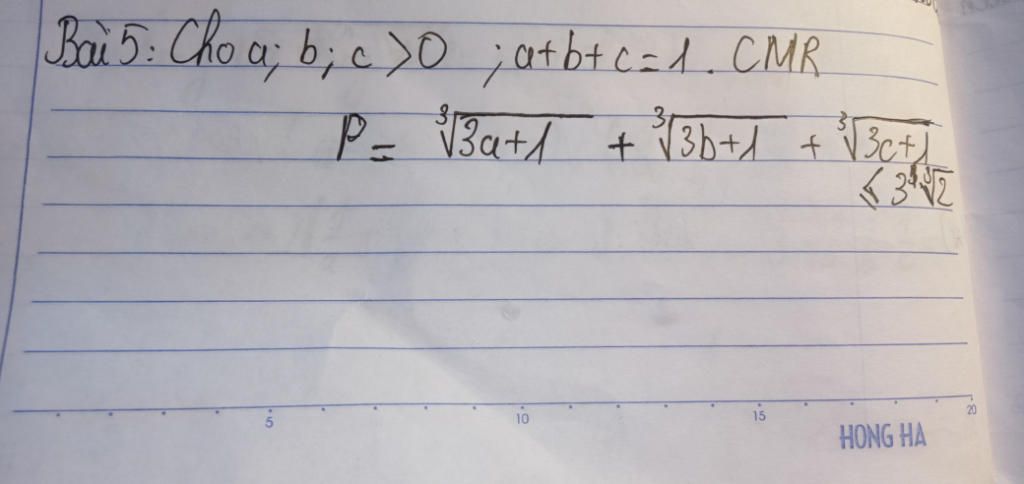 Bài 5: Cho a; b; c >0 ; a+b+c=1. CMR
P = ∛(3a+1) + ∛(3b+1) + ∛(3c+1)
≤ 3∛2
5 10 15 20
HONG HA